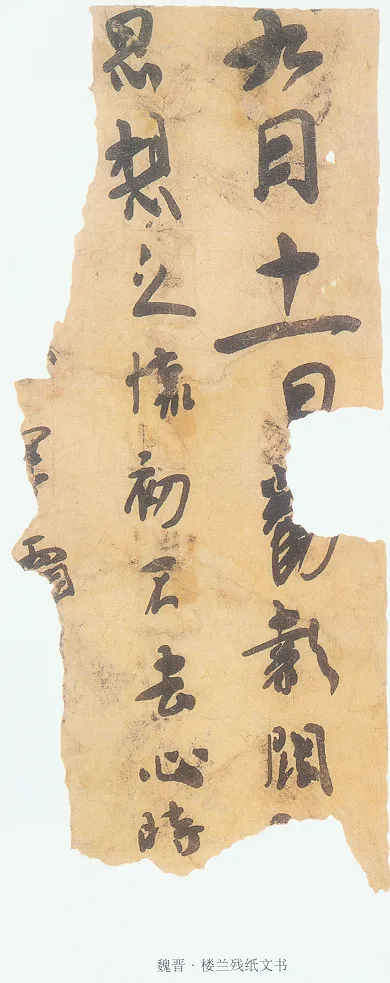 九月十一日報闊
思想之懷初不去心時
魏晋·楼兰残纸文书